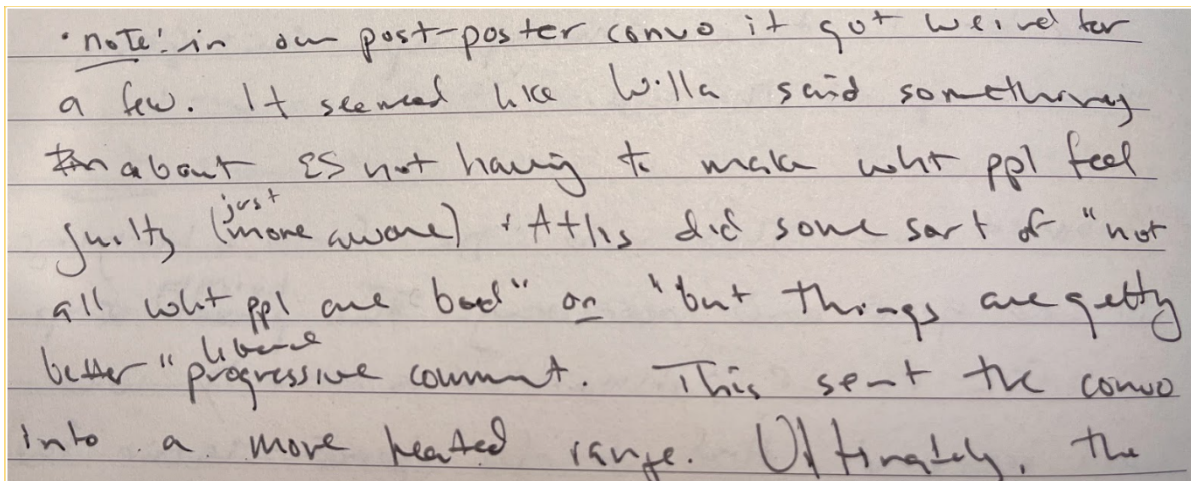 • note: in our post-poster convo it got weird for
a few. It seemed like Willa said something
about ES not having to make wht ppl feel
just
guilty (more aware) & Atlis did some sort of "not
all wht ppl are bad" or "but things are getty
liberal
better" progressive comment. This sent the convo
into a more heated range. Ultimately, the